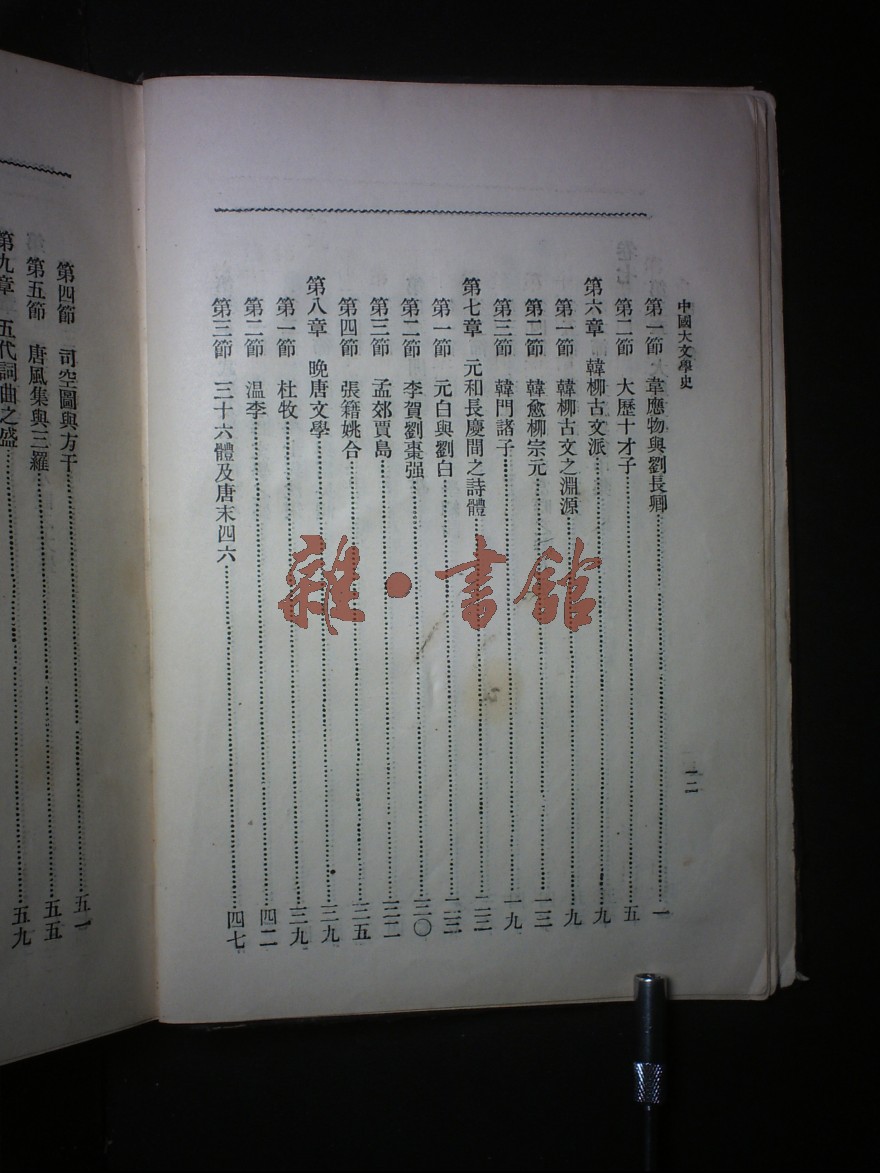 中國大文學史
一二
第一節 韋應物與劉長卿……一
第二節 大歷十才子……五
第六章 韓柳古文派……九
第一節 韓柳古文之淵源……九
第二節 韓愈柳宗元……一三
第三節 韓門諸子……一九
第七章 元和長慶間之詩體……二三
第一節 元白與劉白……二三
第二節 李賀劉棗强……三〇
第三節 孟郊賈島……三二
第四節 張籍姚合……三五
第八章 晚唐文學……三九
第一節 杜牧……三九
第二節 温李……四二
第三節 三十六體及唐末四六……四七
第四節 司空圖與方干……五一
第五節 唐風集與三羅……五五
第九章 五代詞曲之盛……五九
雜·書館